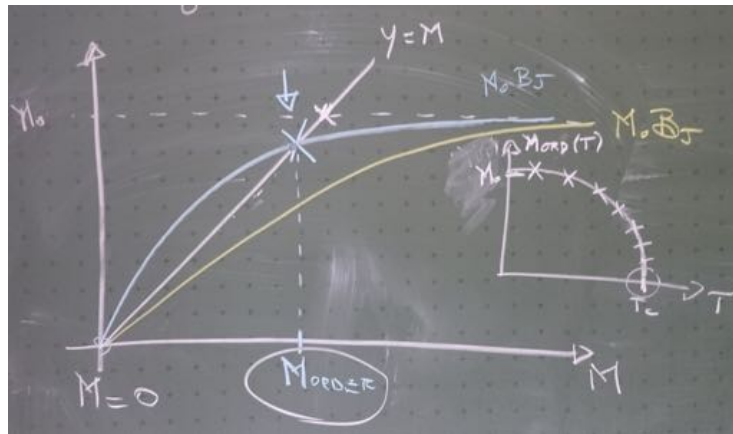 y=M
M₀BJ
M₀BJ
M₀
MORD(T)
M₀
Tc
T
M=0
MORDER
M